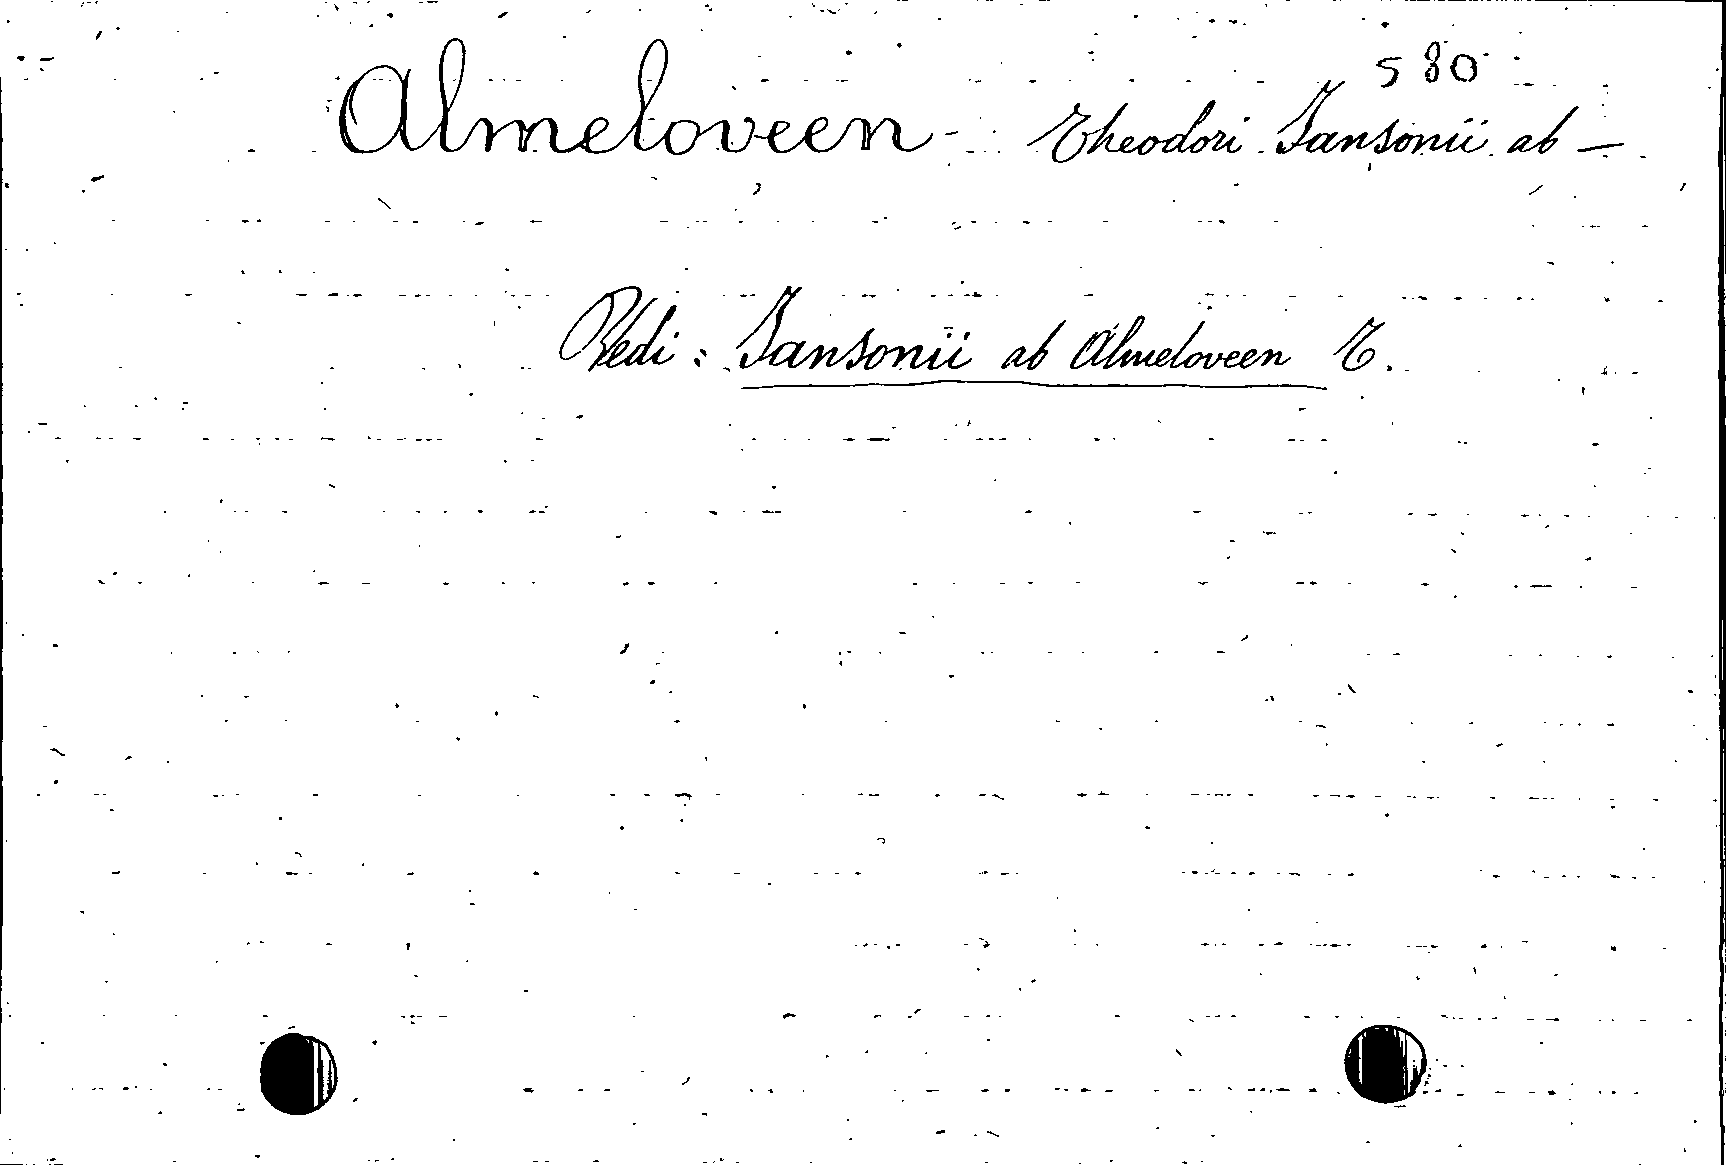 580
Almeloveen - Theodori Jansonii ab —
Vedi: Jansonii ab Almeloveen T.